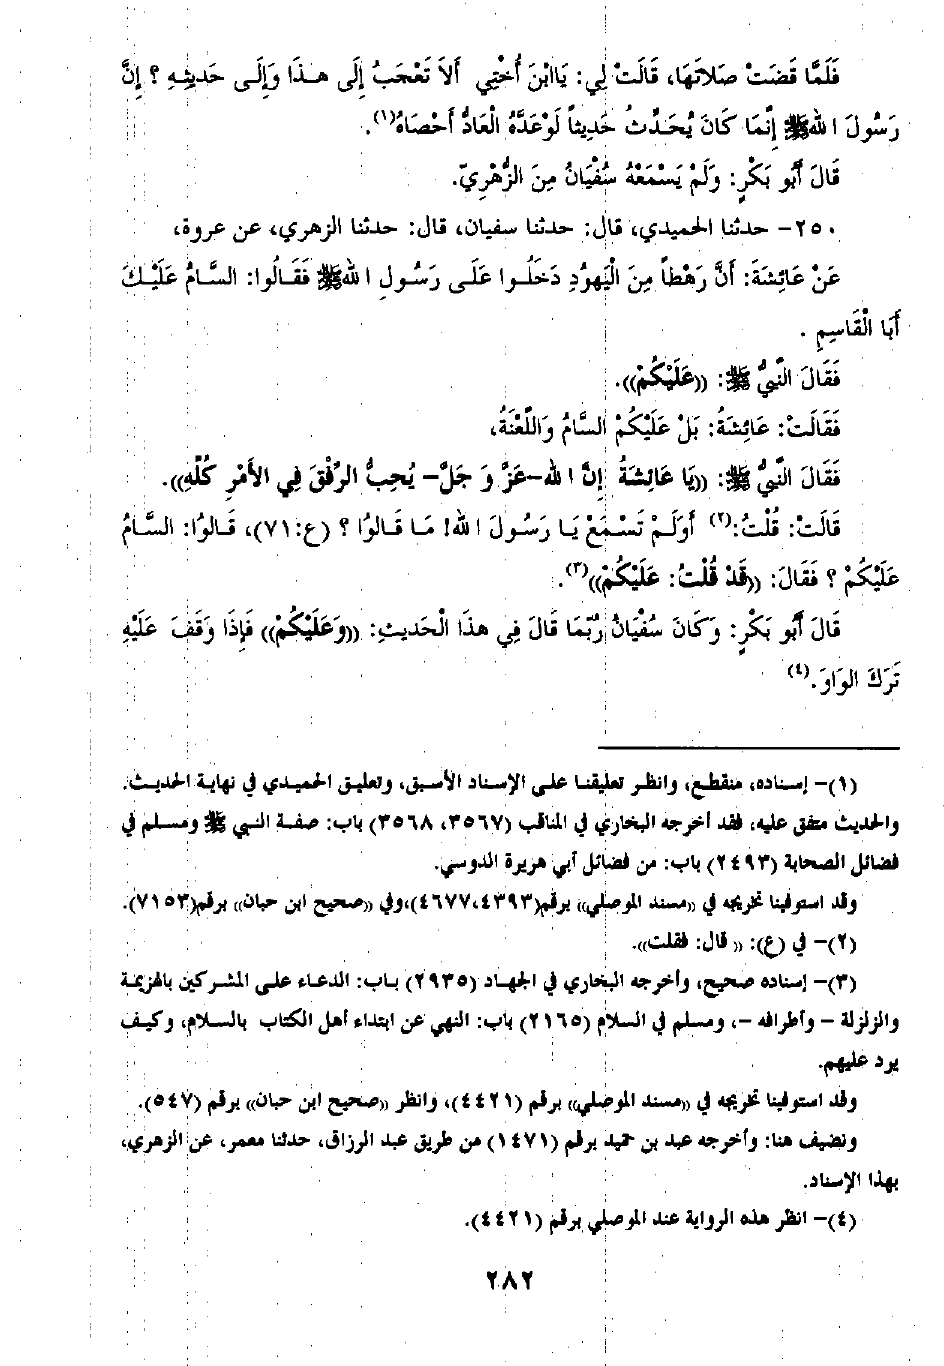 فَلَمَّا قَضَتْ صَلاَتَهَا، قَالَتْ لِي: يَاابْنَ أُخْتِي أَلاَ تَعْجَبُ إِلَى هـذَا وَإِلَـى حَدِيثِـهِ ؟ إِنَّ
رَسُولَ اللهِ ﷺ إِنَّمَا كَانَ يُحَدِّثُ حَدِيثاً لَوْعَدَّهُ الْعَادُّ أَحْصَاهُ(١).
قَالَ أَبُو بَكْرٍ: وَلَمْ يَسْمَعْهُ سُفْيَانُ مِنَ الزُّهْرِيّ.
٢٥٠- حدثنا الحميدي، قال: حدثنا سفيان، قال: حدثنا الزهري، عن عروة،
عَنْ عَائِشَةَ: أَنَّ رَهْطاً مِنَ الْيَهُودِ دَخَلُـوا عَلَـى رَسُـولِ اللهِ ﷺ فَقَـالُوا: السَّـامُ عَلَيْـكَ
أَبَا الْقَاسِمِ .
فَقَالَ النَّبِيُّ ﷺ: ((عَلَيْكُمْ)).
فَقَالَتْ: عَائِشَةُ: بَلْ عَلَيْكُمُ السَّامُ وَاللَّعْنَةُ،
فَقَالَ النَّبِيُّ ﷺ: ((يَا عَائِشَةُ إِنَّ اللهَ -عَزَّ وَ جَلَّ- يُحِبُّ الرِّفْقَ فِي الأَمْرِ كُلِّهِ)).
قَالَتْ: قُلْتُ:(٢) أَوَلَـمْ تَسْـمَعْ يَـا رَسُـولَ اللهِ! مَـا قَـالُوا ؟ (ع:٧١)، قَـالُوا: السَّـامُ
عَلَيْكُمْ ؟ فَقَالَ: ((قَدْ قُلْتُ: عَلَيْكُمْ))(٣).
قَالَ أَبُو بَكْرٍ: وَكَانَ سُفْيَانُ رُبَّمَا قَالَ فِي هذَا الْحَدِيثِ: ((وَعَلَيْكُمْ)) فَإِذَا وَقَفَ عَلَيْهِ
تَرَكَ الوَاوَ.(٤)
(١)- إسناده، منقطع، وانظر تعليقنا على الإسناد الأسبق، وتعليق الحميدي في نهاية الحديث.
والحديث متفق عليه، فقد أخرجه البخاري في المناقب (٣٥٦٧، ٣٥٦٨) باب: صفة النبي ﷺ ومسلم في
فضائل الصحابة (٢٤٩٣) باب: من فضائل أبي هريرة الدوسي.
وقد استوفينا تخريجه في ((مسند الموصلي)) برقم(٤٣٩٣،٤٦٧٧)،وفي ((صحيح ابن حبان)) برقم(٧١٥٣).
(٢)- في (ع): (( قال: فقلت)).
(٣)- إسناده صحيح، وأخرجه البخاري في الجهاد (٢٩٣٥) باب: الدعاء على المشركين بالهزيمة
والزلزلة - وأطرافه -، ومسلم في السلام (٢١٦٥) باب: النهي عن ابتداء أهل الكتاب بالسلام، وكيف
يرد عليهم.
وقد استوفينا تخريجه في ((مسند الموصلي)) برقم (٤٤٢١)، وانظر ((صحيح ابن حبان)) برقم (٥٤٧).
ونضيف هنا: وأخرجه عبد بن حميد برقم (١٤٧١) من طريق عبد الرزاق، حدثنا معمر، عن الزهري،
بهذا الإسناد.
(٤)- انظر هذه الرواية عند الموصلي برقم (٤٤٢١).
٢٨٢